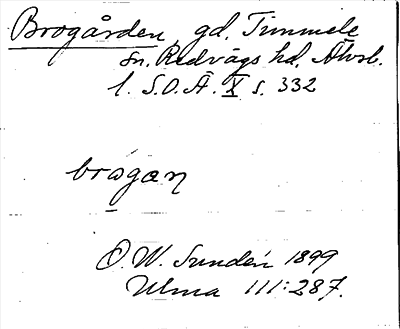 Brogården, gd. Timmele
sn. Redvägs hd. Älvsb.
l. S.O.Ä. X s. 332
brogan
O. W. Sundén 1899
Ulma 111:287.